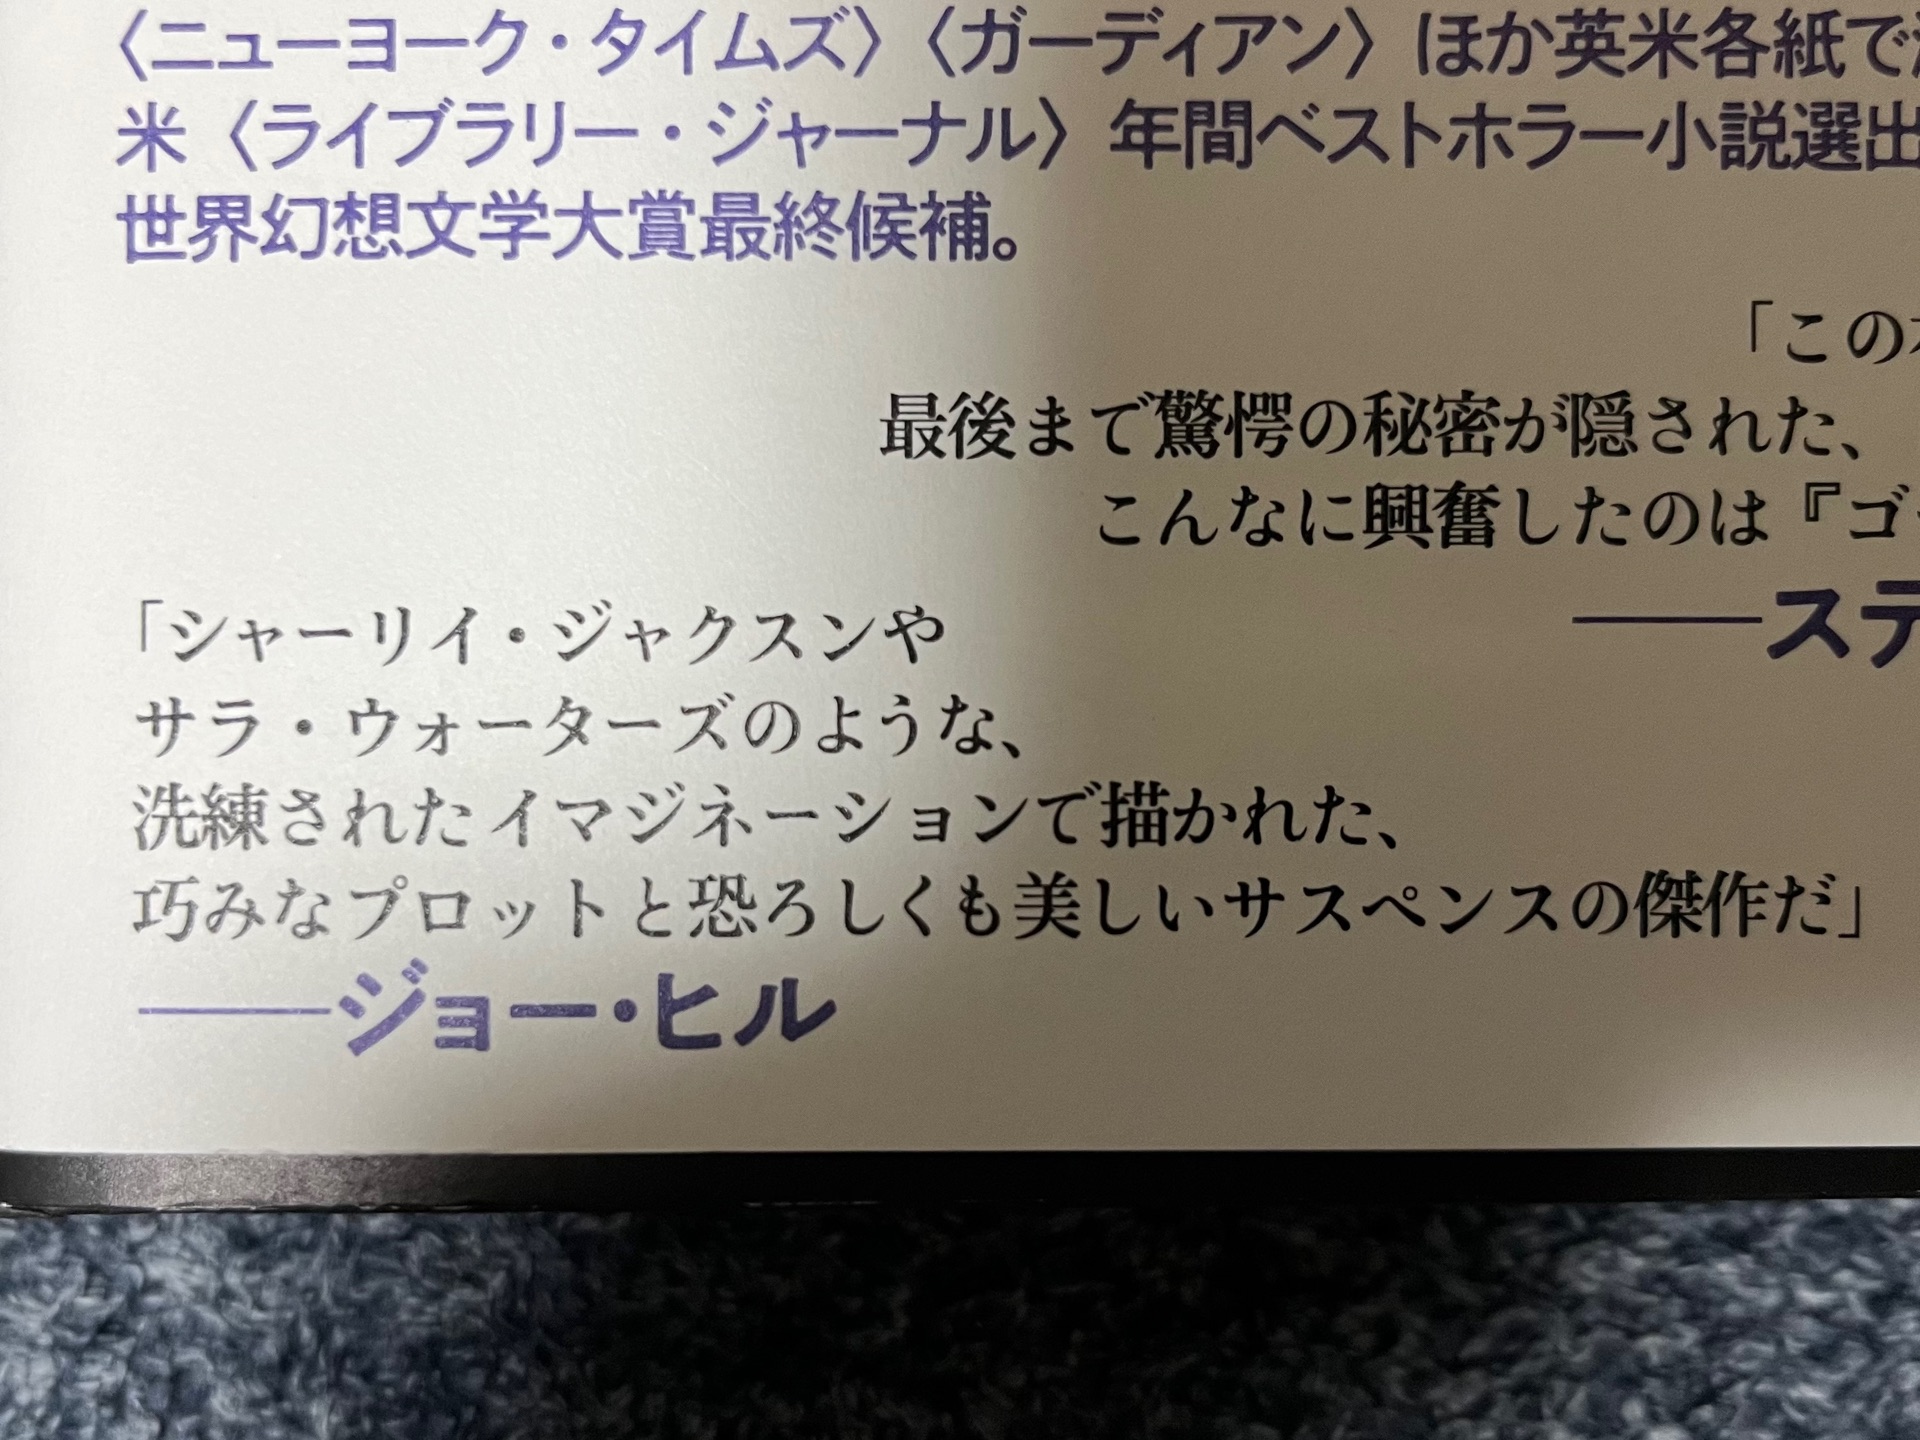 〈ニューヨーク・タイムズ〉〈ガーディアン〉ほか英米各紙で
米〈ライブラリー・ジャーナル〉年間ベストホラー小説選出
世界幻想文学大賞最終候補。
「この
最後まで驚愕の秘密が隠された、
こんなに興奮したのは『ゴ
——ステ
「シャーリイ・ジャクスンや
サラ・ウォーターズのような、
洗練されたイマジネーションで描かれた、
巧みなプロットと恐ろしくも美しいサスペンスの傑作だ」
——ジョー・ヒル